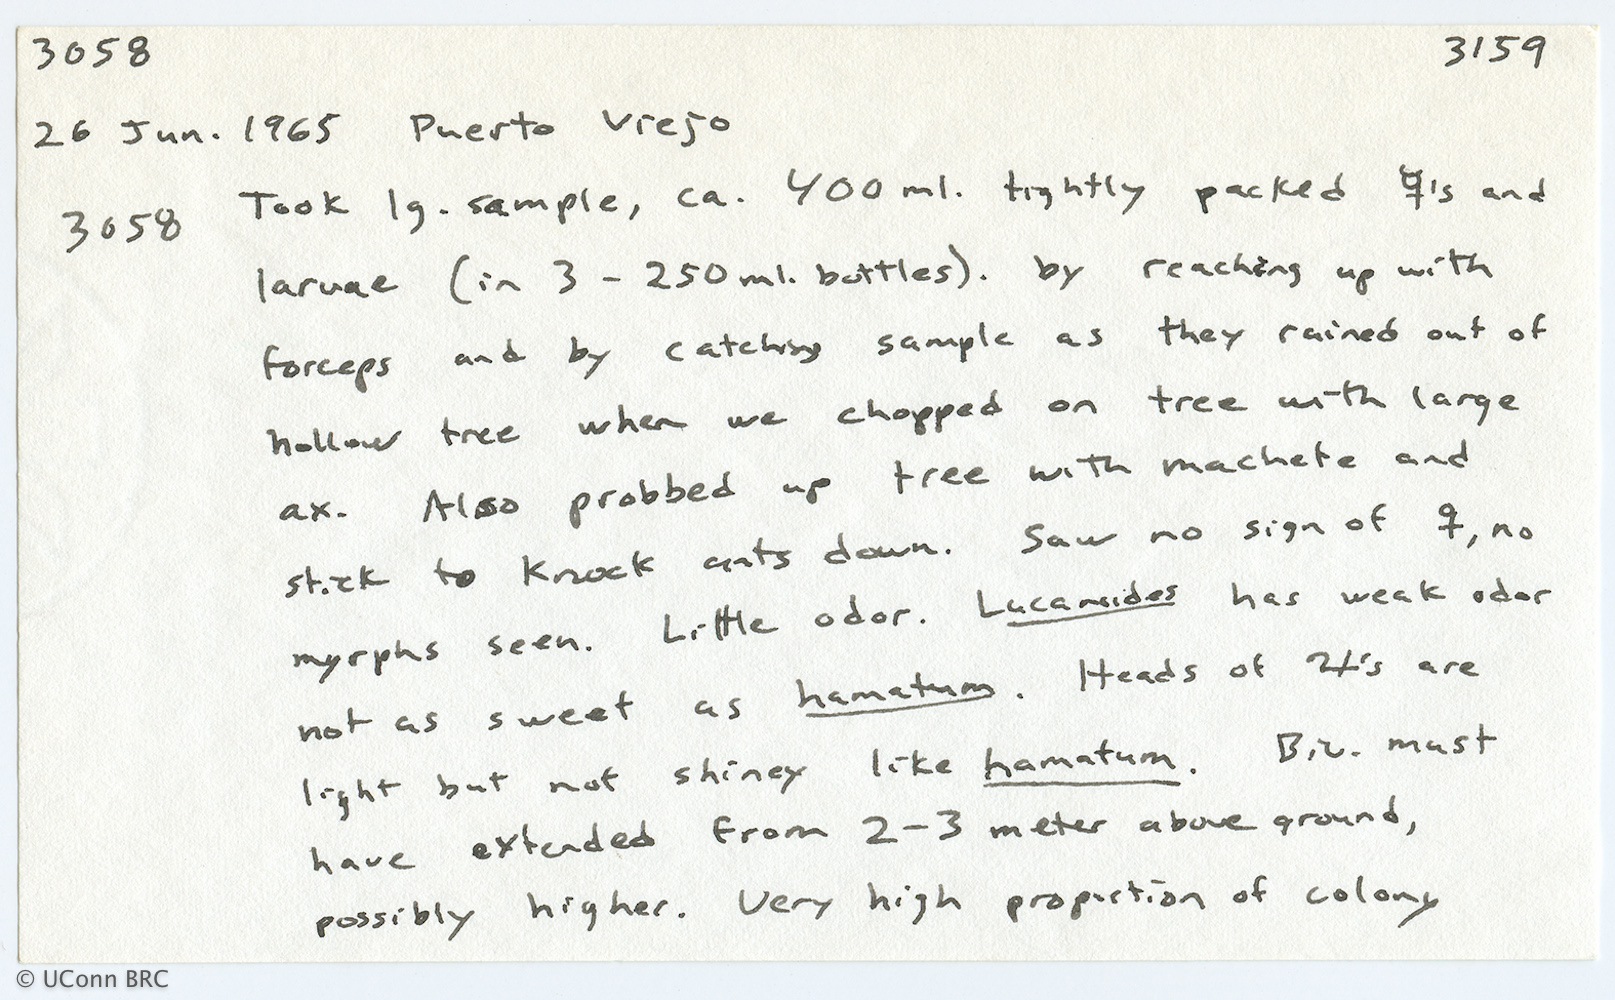 3058 3159
26 Jun. 1965 Puerto Viejo
3058 Took lg. sample, ca. 400 ml. tightly packed ☿'s and
larvae (in 3 - 250 ml. bottles). by reaching up with
forceps and by catching sample as they rained out of
hollow tree when we chopped on tree with large
ax. Also probbed up tree with machete and
stick to knock ants down. Saw no sign of ♀, no
myrphs seen. Little odor. Lucanoides has weak odor
not as sweet as hamatum. Heads of ♃'s are
light but not shiney like hamatum. Biv. must
have extended from 2-3 meter above ground,
possibly higher. Very high proportion of colony
© UConn BRC